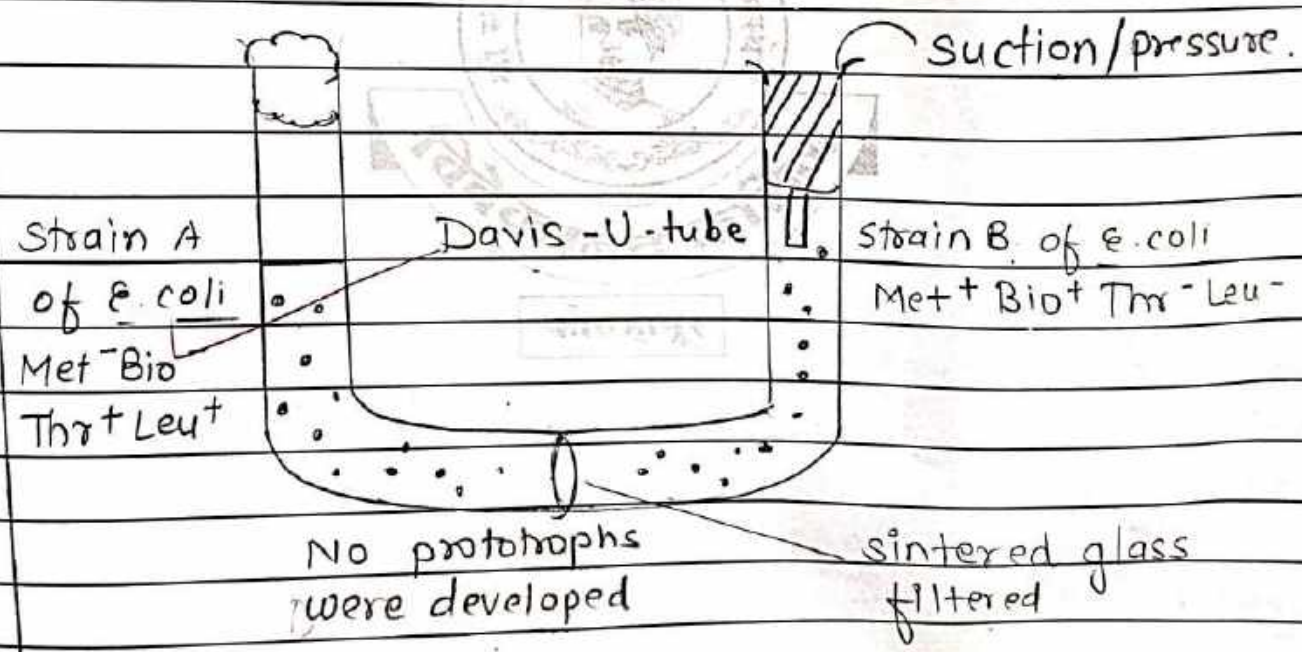 Suction/pressure.
Strain A
of E. coli
Met⁻Bio
Thr⁺ Leu⁺
Davis-U-tube
Strain B. of E. coli
Met⁺ Bio⁺ Thr⁻ Leu⁻
No prototrophs
were developed
sintered glass
filtered